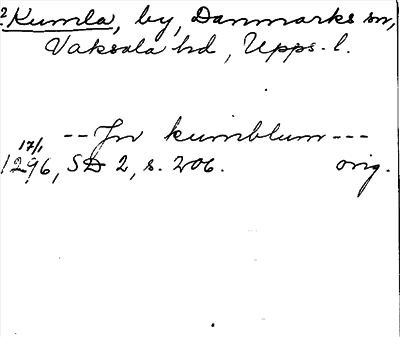 2 Kumla, by, Danmarks sn,
Vaksala hd, Upps. l.
-- Jn kumblum ---
17/1
1296, SD 2, s. 206. orig.